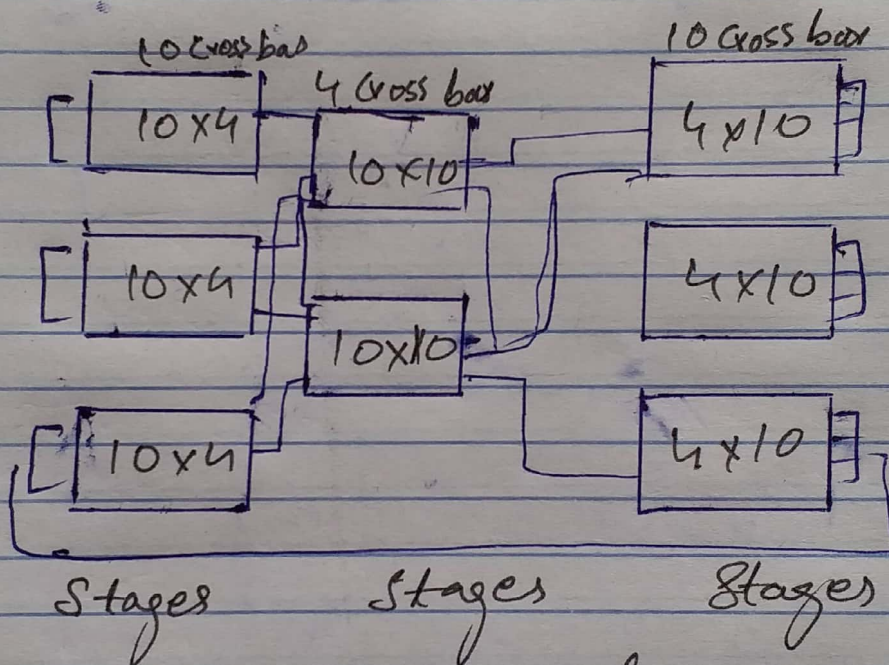 10 Crossbar
4 Cross bar
10 Cross bar
10x4
10x10
4x10
10x4
10x10
4x10
10x4
4x10
Stages
Stages
Stages